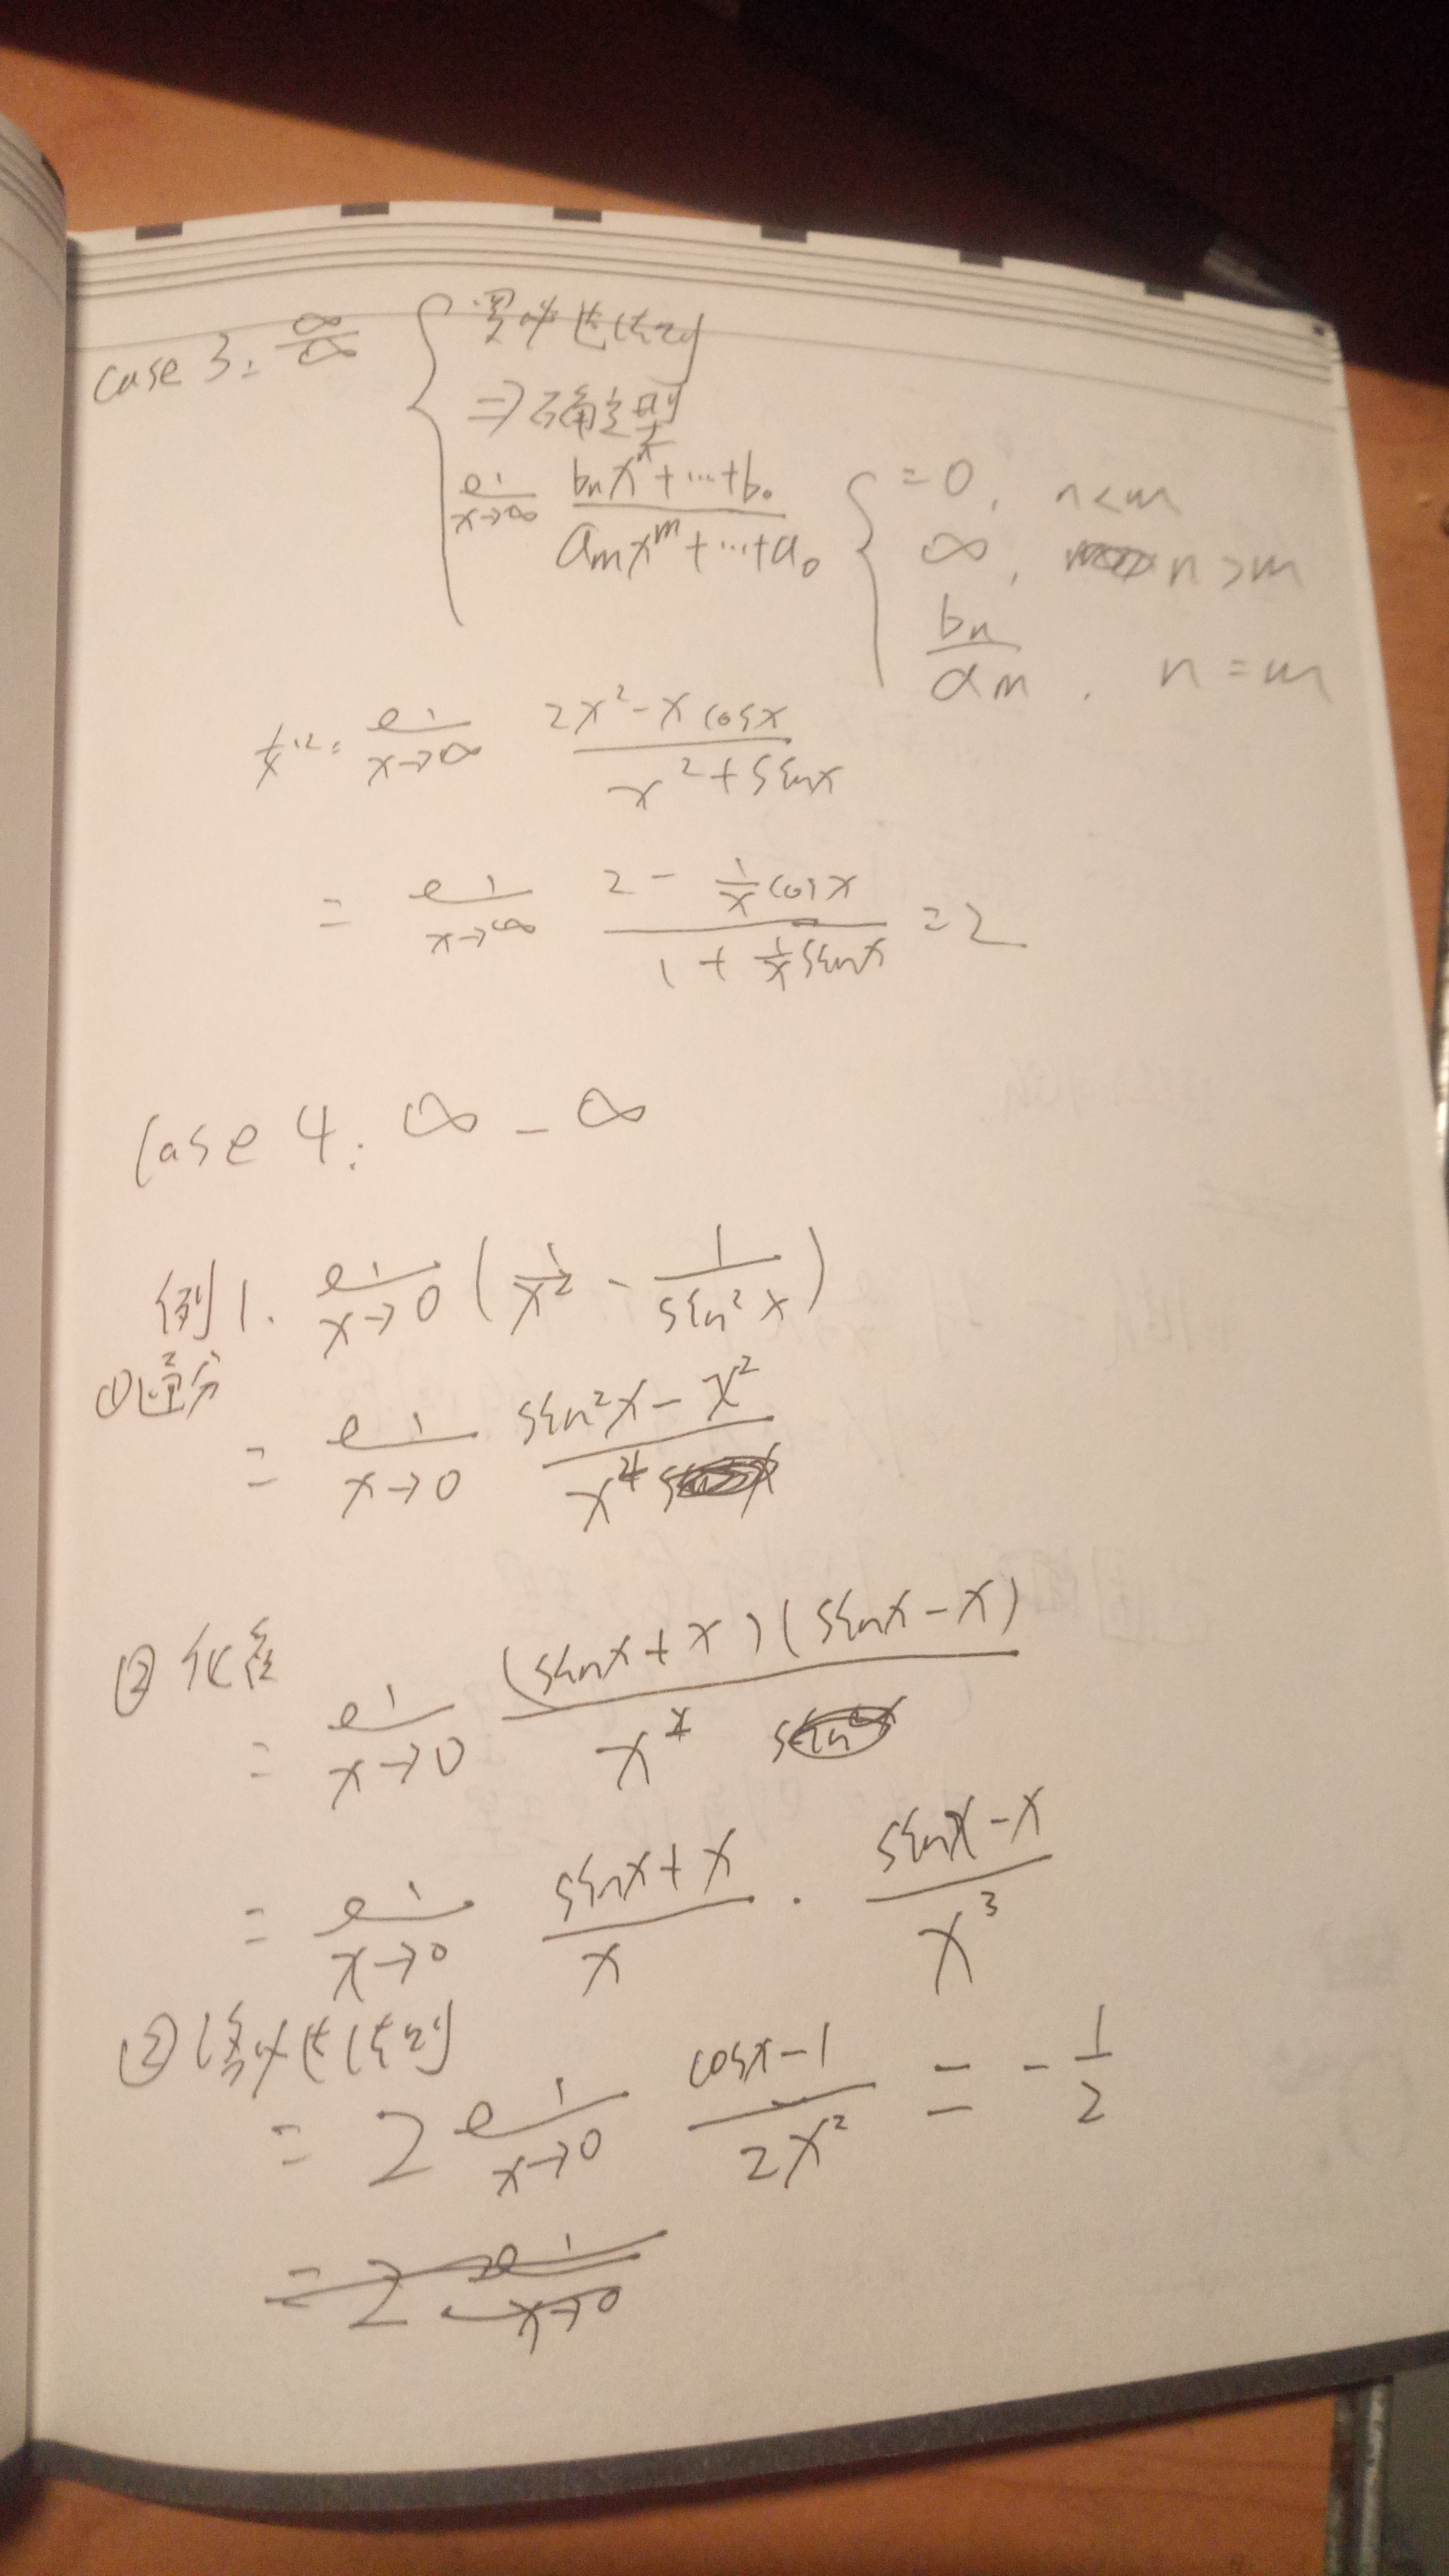 case 3: ∞/∞ { 洛必达法则
⇒ 确定型
lim x→∞ (bₙxⁿ+…+b₀)/(aₘxᵐ+…+a₀) { =0, n<m
∞, n>m
bₙ/aₘ, n=m
lim x→∞ (2x²-x cosx)/(x²+sinx)
= lim x→∞ (2 - 1/x cosx)/(1 + 1/x sinx) = 2
Case 4: ∞ - ∞
例1. lim x→0 (1/x² - 1/sin²x)
①通分
= lim x→0 (sin²x - x²)/x⁴
②化
= lim x→0 (sinx+x)(sinx-x)/x⁴
= lim x→0 (sinx+x)/x · (sinx-x)/x³
②洛必达法则
= 2 lim x→0 (cosx-1)/2x² = -1/2
= 2 lim x→0